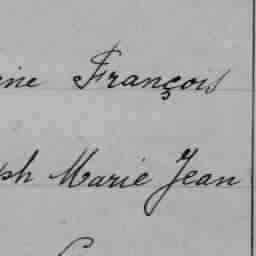 ine François
ph Marie Jean